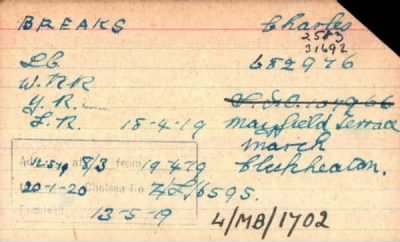 BREAKS Charles
2583
31692
L/C. 682976
W.R.R
Y.R.
L.R. 18-4-19 Mayfield Terrace
March
12-5-19 8/3 from 19-4-19 Cleckheaton.
20-1-20 Chelsea No Z/L/6595.
13-5-19 4/MB/1702